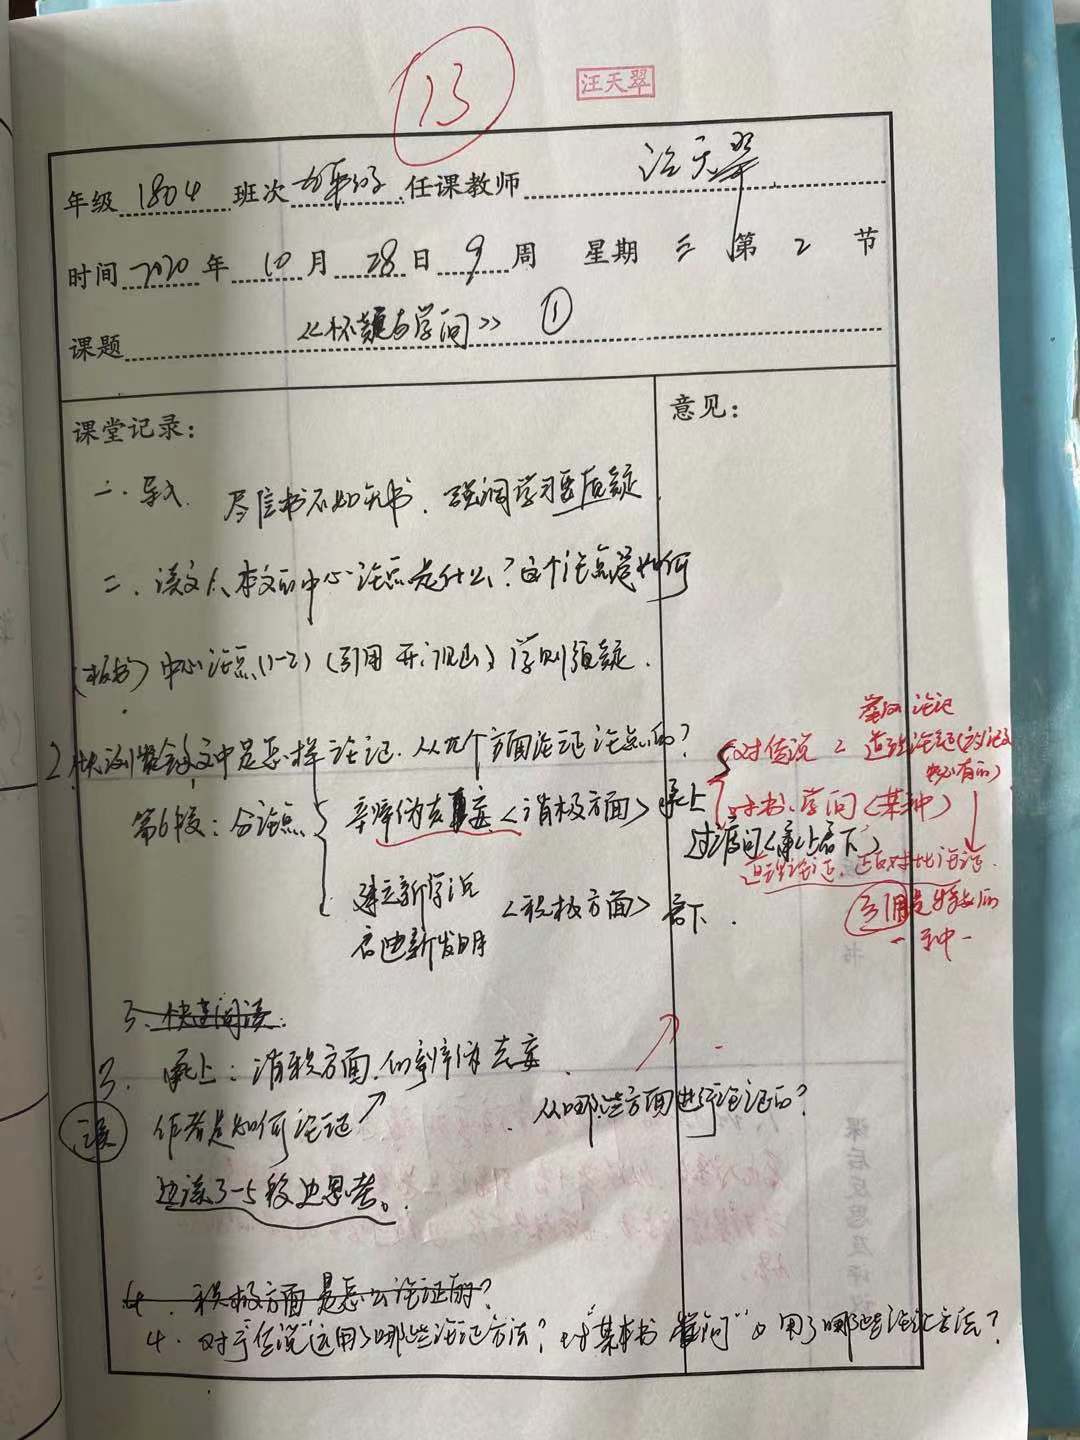 13
汪天翠
年级 1804 班次 任课教师 汪天翠
时间 2020 年 10 月 28 日 9 周 星期 三 第 2 节
课题 《怀疑与学问》 ①
课堂记录:
意见:
一. 导入. 尽信书不如无书. 强调学习要质疑
二. 读文 1、本文的中心论点是什么? 这个论点是如何
(板书) 中心论点(1-2) (引用 开门见山) 学则须疑.
2 文中是怎样论证. 从几个方面论证论点的?
第6段: 分论点
辨伪去妄 <消极方面> 承上
过渡句(承上启下)
建立新学说
启迪新发明
<积极方面> 启下.
举例论证
对传说 2 道理论证
本书、学问 (某种)
道理论证. 正反对比论证.
引用是特殊的
一种
3. 快速阅读:
3. 承上: 消极方面. 辨伪去妄.
作者是如何论证
从哪些方面进行论证的?
边读3-5段边思考。
4. 积极方面是怎么论证的?
4. 对于“传说”运用了哪些论证方法? 对“某本书 学问” 用了哪些论证方法?
课后反思及评